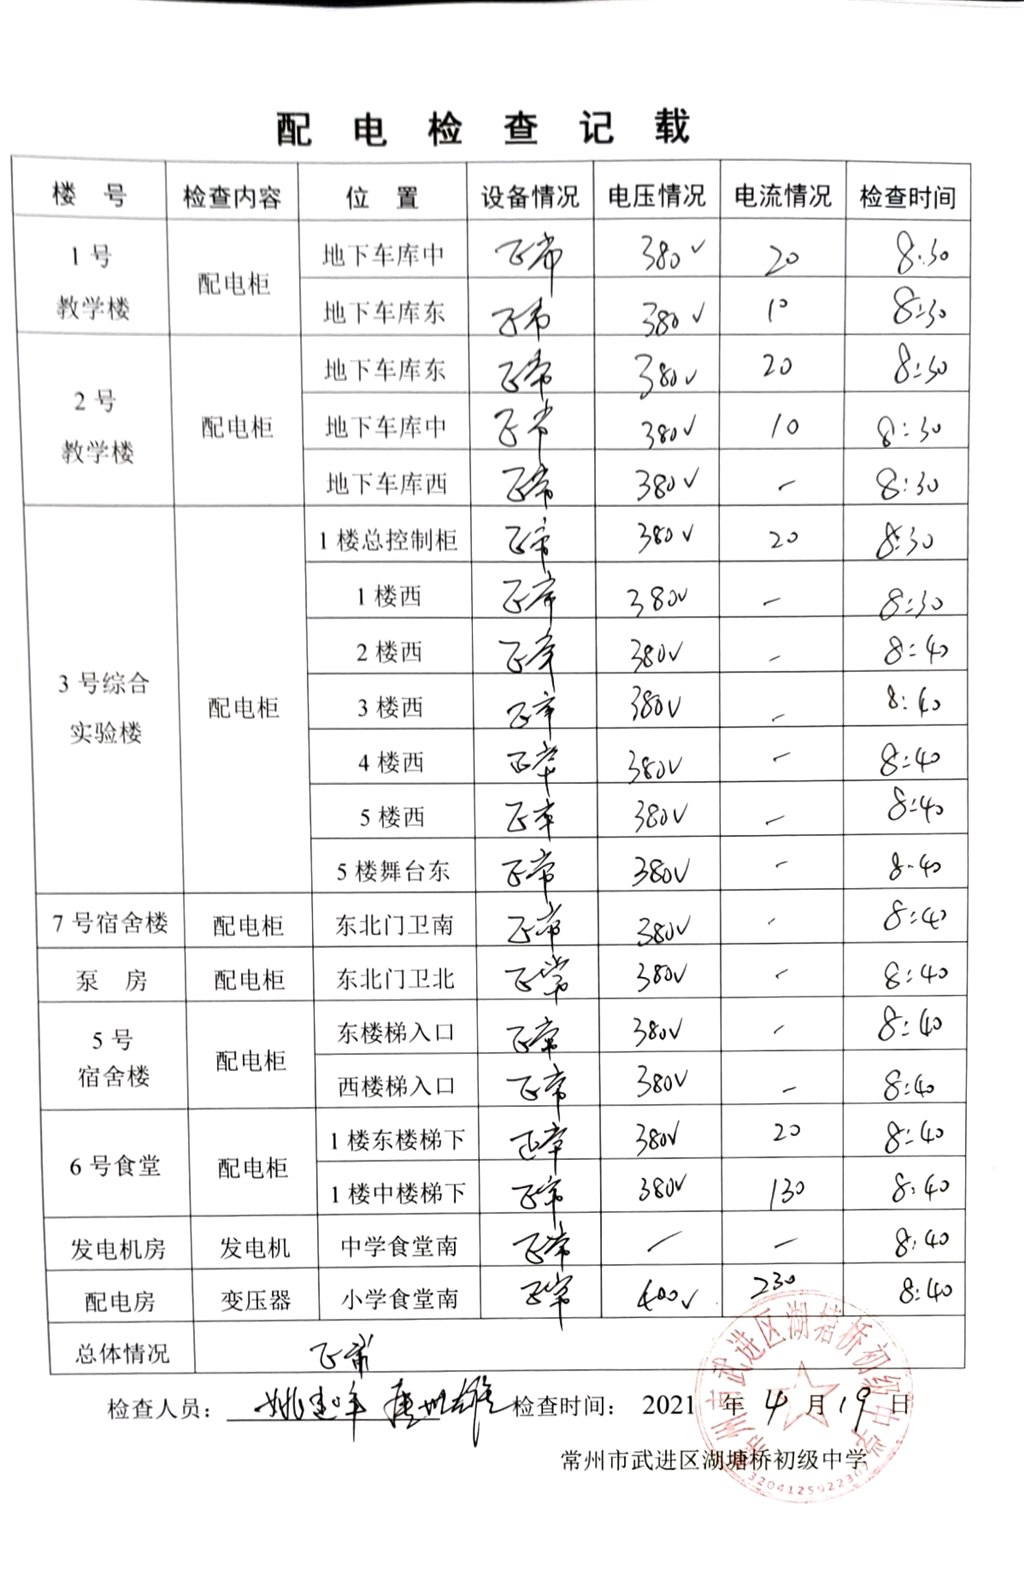 配电检查记载
楼号 检查内容 位置 设备情况 电压情况 电流情况 检查时间
1号教学楼 配电柜 地下车库中 正常 380V 20 8:30
地下车库东 正常 380V 10 8:30
2号教学楼 配电柜 地下车库东 正常 380V 20 8:30
地下车库中 正常 380V 10 8:30
地下车库西 正常 380V - 8:30
3号综合实验楼 配电柜 1楼总控制柜 正常 380V 20 8:30
1楼西 正常 380V - 8:30
2楼西 正常 380V - 8:40
3楼西 正常 380V - 8:40
4楼西 正常 380V - 8:40
5楼西 正常 380V - 8:40
5楼舞台东 正常 380V - 8:40
7号宿舍楼 配电柜 东北门卫南 正常 380V - 8:40
泵房 配电柜 东北门卫北 正常 380V - 8:40
5号宿舍楼 配电柜 东楼梯入口 正常 380V - 8:40
西楼梯入口 正常 380V - 8:40
6号食堂 配电柜 1楼东楼梯下 正常 380V 20 8:40
1楼中楼梯下 正常 380V 130 8:40
发电机房 发电机 中学食堂南 正常 / - 8:40
配电房 变压器 小学食堂南 正常 400V 230 8:40
总体情况 正常
检查人员： 检查时间： 2021 年 4 月 19 日
常州市武进区湖塘桥初级中学
常州市武进区湖塘桥初级中学